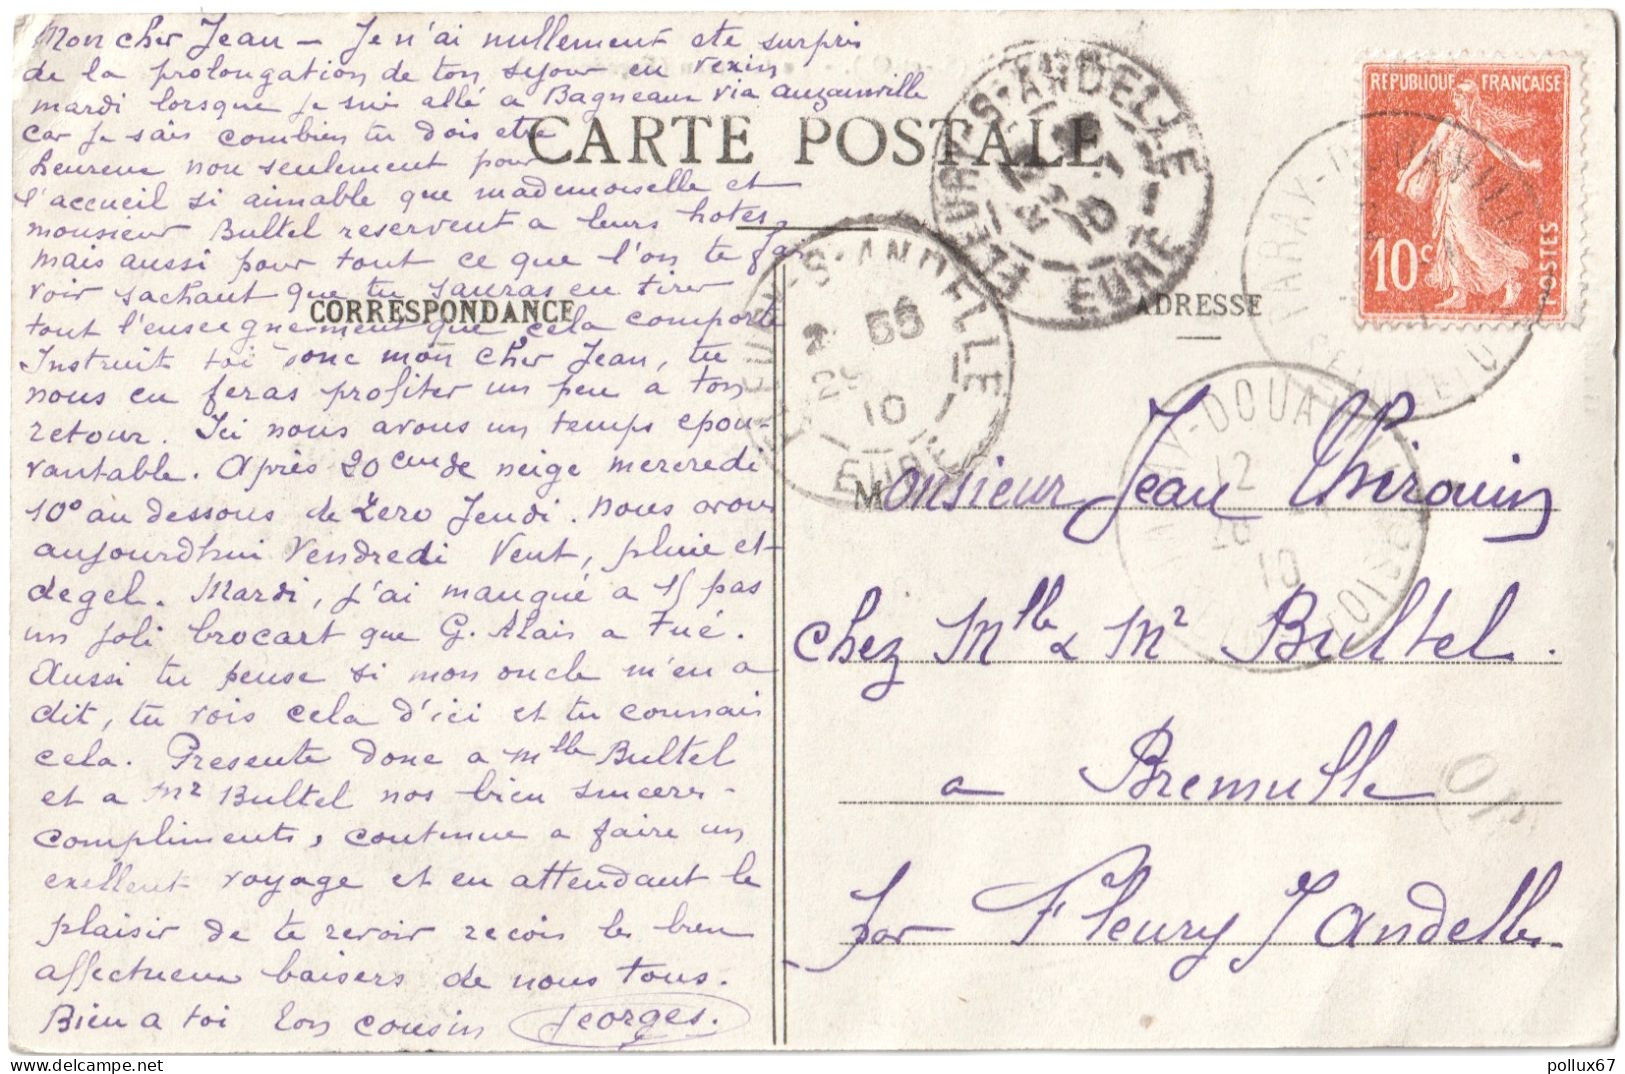 Mon cher Jean – Je n'ai nullement ete surpris
de la prolongation de ton sejour en vexin
mardi lorsque je suis allé a Bagneaux via auzainville
car je sais combien tu dois etre
heureux non seulement pour
l'accueil si aimable que mademoiselle et
monsieur Bultel reservent a leurs hotes,
mais aussi pour tout ce que l'on te fai
voir sachant que tu sauras en tirer
tout l'enseignement que cela comporte
Instruit toi donc mon cher Jean, tu
nous en feras profiter un peu a ton
retour. Ici nous avons un temps epou-
vantable. Après 20 cm de neige mercredi
10° au dessous de zero Jeudi. nous avons
aujourd'hui Vendredi Vent, pluie et
degel. Mardi, j'ai manqué a 15 pas
un joli brocart que G. Alais a tué.
Aussi tu pense si mon oncle m'en a
dit, tu vois cela d'ici et tu connais
cela. Presente donc a Mlle Bultel
et a Mr Bultel nos bien sinceres
compliments, continue a faire un
exellent voyage et en attendant le
plaisir de te revoir recois les bien
affectueux baisers de nous tous.
Bien a toi ton cousin Georges.
CARTE POSTALE
CORRESPONDANCE
ADRESSE
REPUBLIQUE FRANÇAISE
10c
POSTES
FLEURY-S-ANDELLE
10
EURE
FLEURY-S-ANDELLE
10
EURE
TARAY-DOUAN
12
10
Monsieur Jean Thirouin
chez Mlle & Mr Bultel.
a Bremulle
par Fleury S/ andelle
pollux67